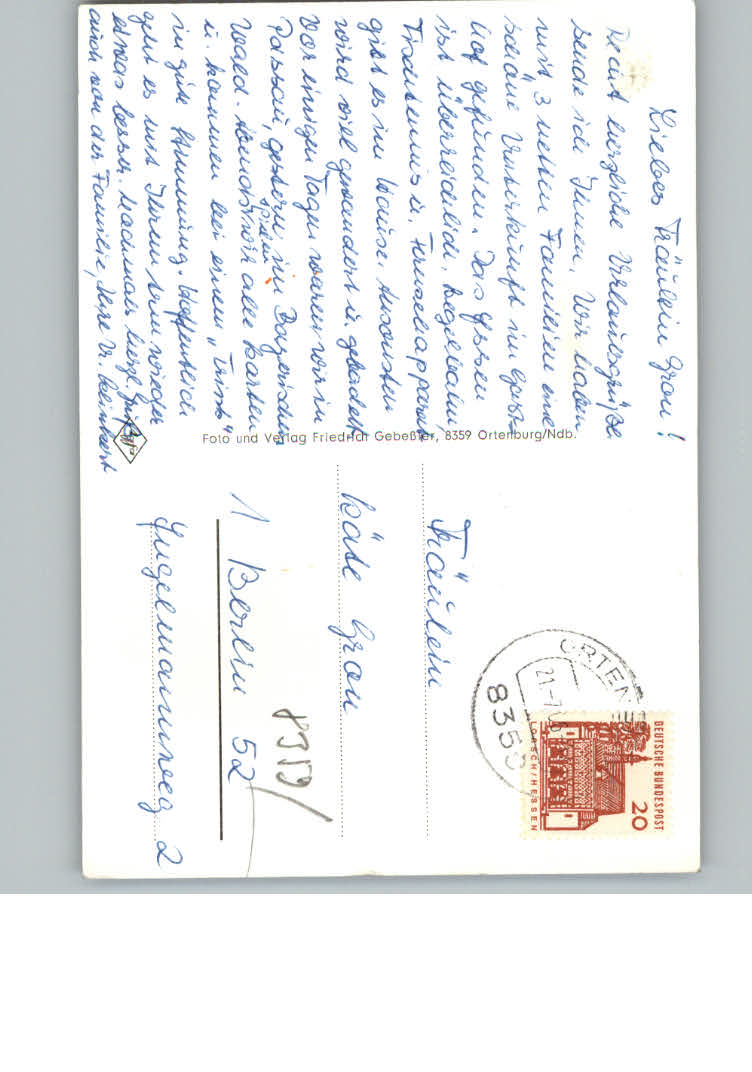 Liebes Fräulein Gron!
Recht herzliche Urlaubsgrüße
sende ich Ihnen. Wir haben
mit 3 netten Familien eine
schöne Unterkunft im Gast-
hof gefunden. Das Essen
ist überreichlich, Kegelbahn,
Tischtennis u. Fernsehapparat
gibt es im Hause. Ansonsten
wird viel gewandert u. gebadet.
Vor einigen Tagen waren wir in
Passau, gestern im Bayrischen
Wald. Abends spielen wir alle Karten
u. kommen bei einem "Trink"
in gute Stimmung. Hoffentlich
geht es mit Ihrem wieder
etwas besser. Nochmals herzl. Grüße
auch von der Familie, Ihre
Foto und Verlag Friedrich Gebeßler, 8359 Ortenburg/Ndb.
Fräulein
Käte Gron
1 Berlin 52
Engelmannweg 2
8359
ORTEN
21.-7.
8359
DEUTSCHE BUNDESPOST
20
LORSCH/HESSEN